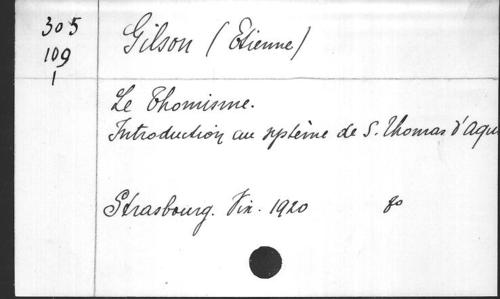 305
109
1
Gilson (Etienne)
Le Thomisme.
Introduction au système de S. Thomas d'Aqu
Strasbourg. Vix. 1920